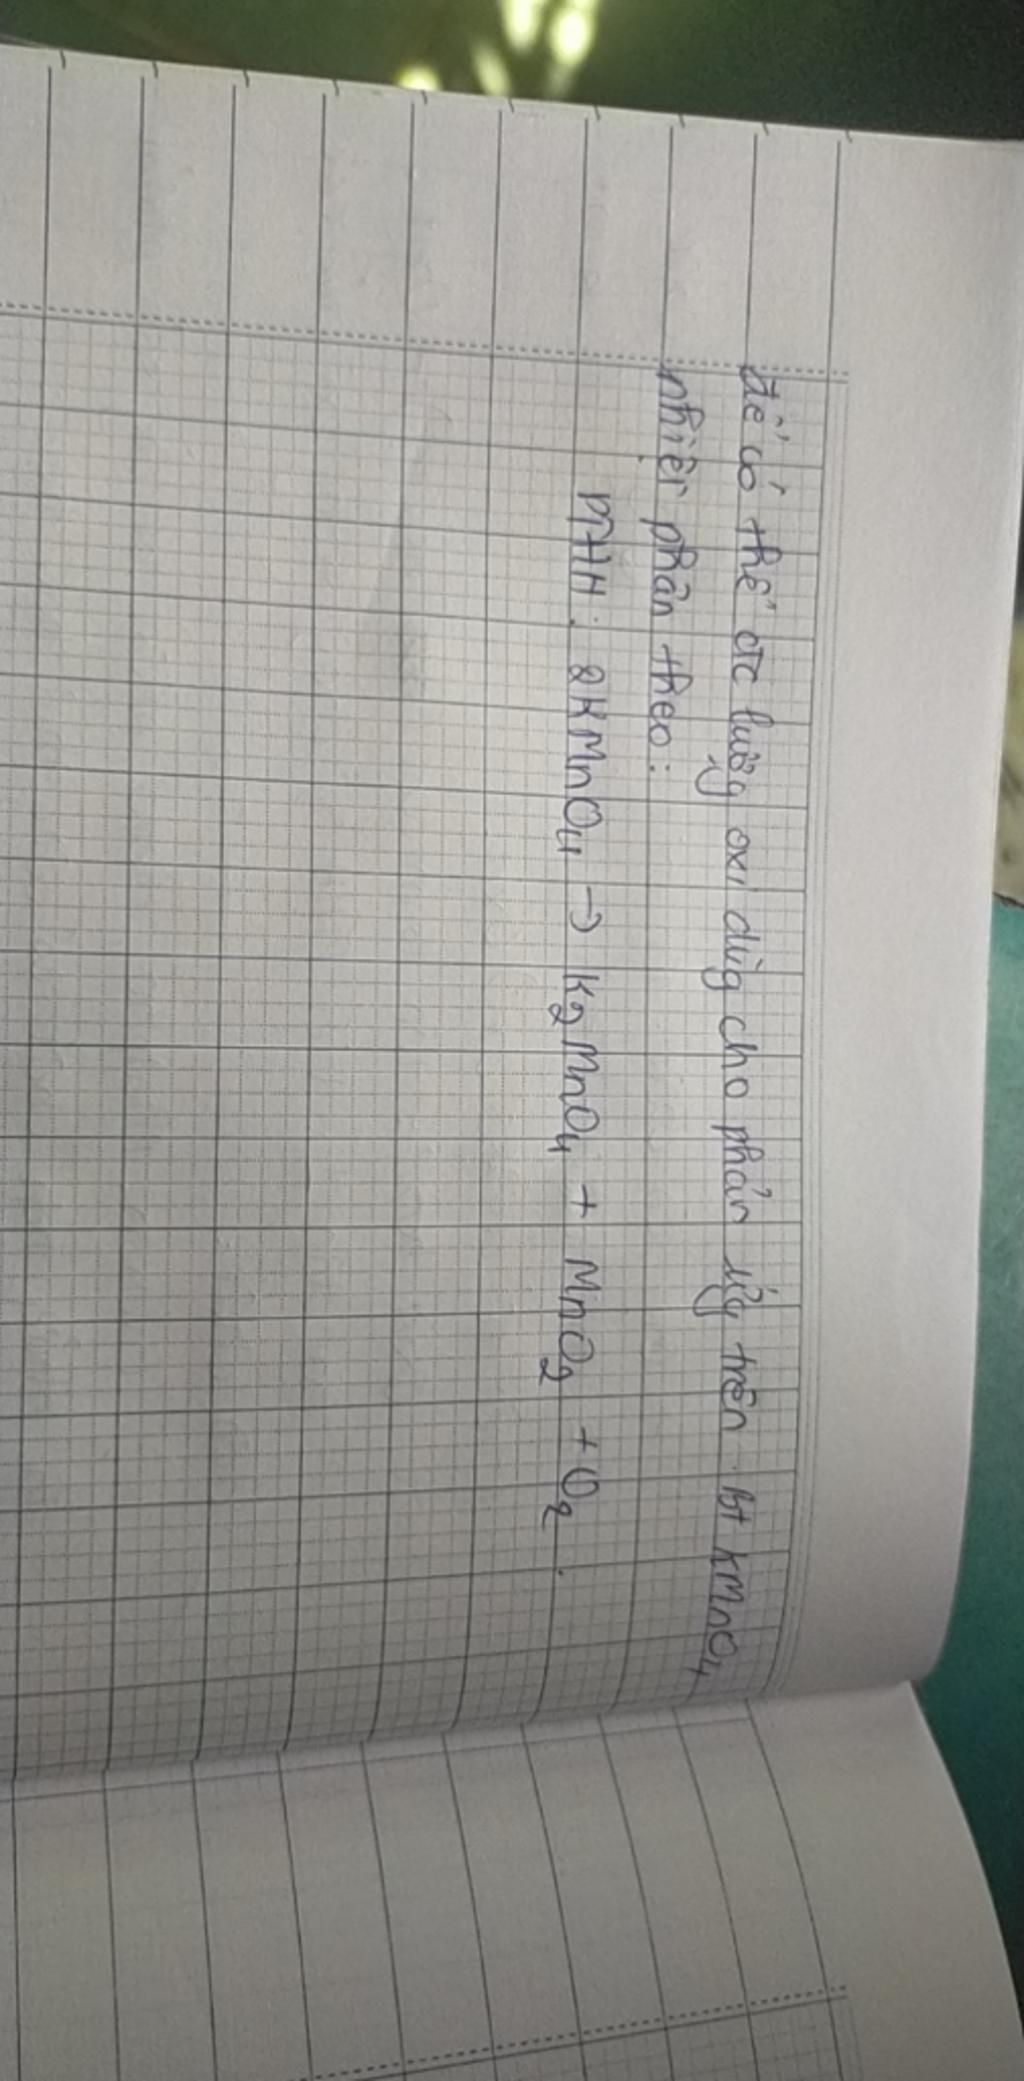 để có thể đc lượg oxi dùg cho phản ứg trên. Bt KMnO4
nhiệt phân theo:
PTHH: 2KMnO4 → K2MnO4 + MnO2 + O2.